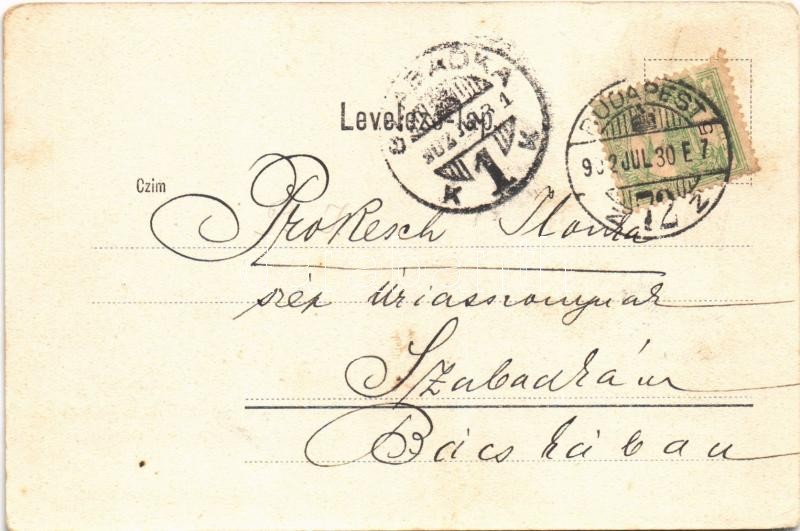 Levelező-lap.
SZABADKA
902 JUL 31
K 1 K
BUDAPEST
902 JUL 30 E 7
72
Czim
Prokesch Ilonka
szép úriasszonynak
Szabadkán
Bácskában